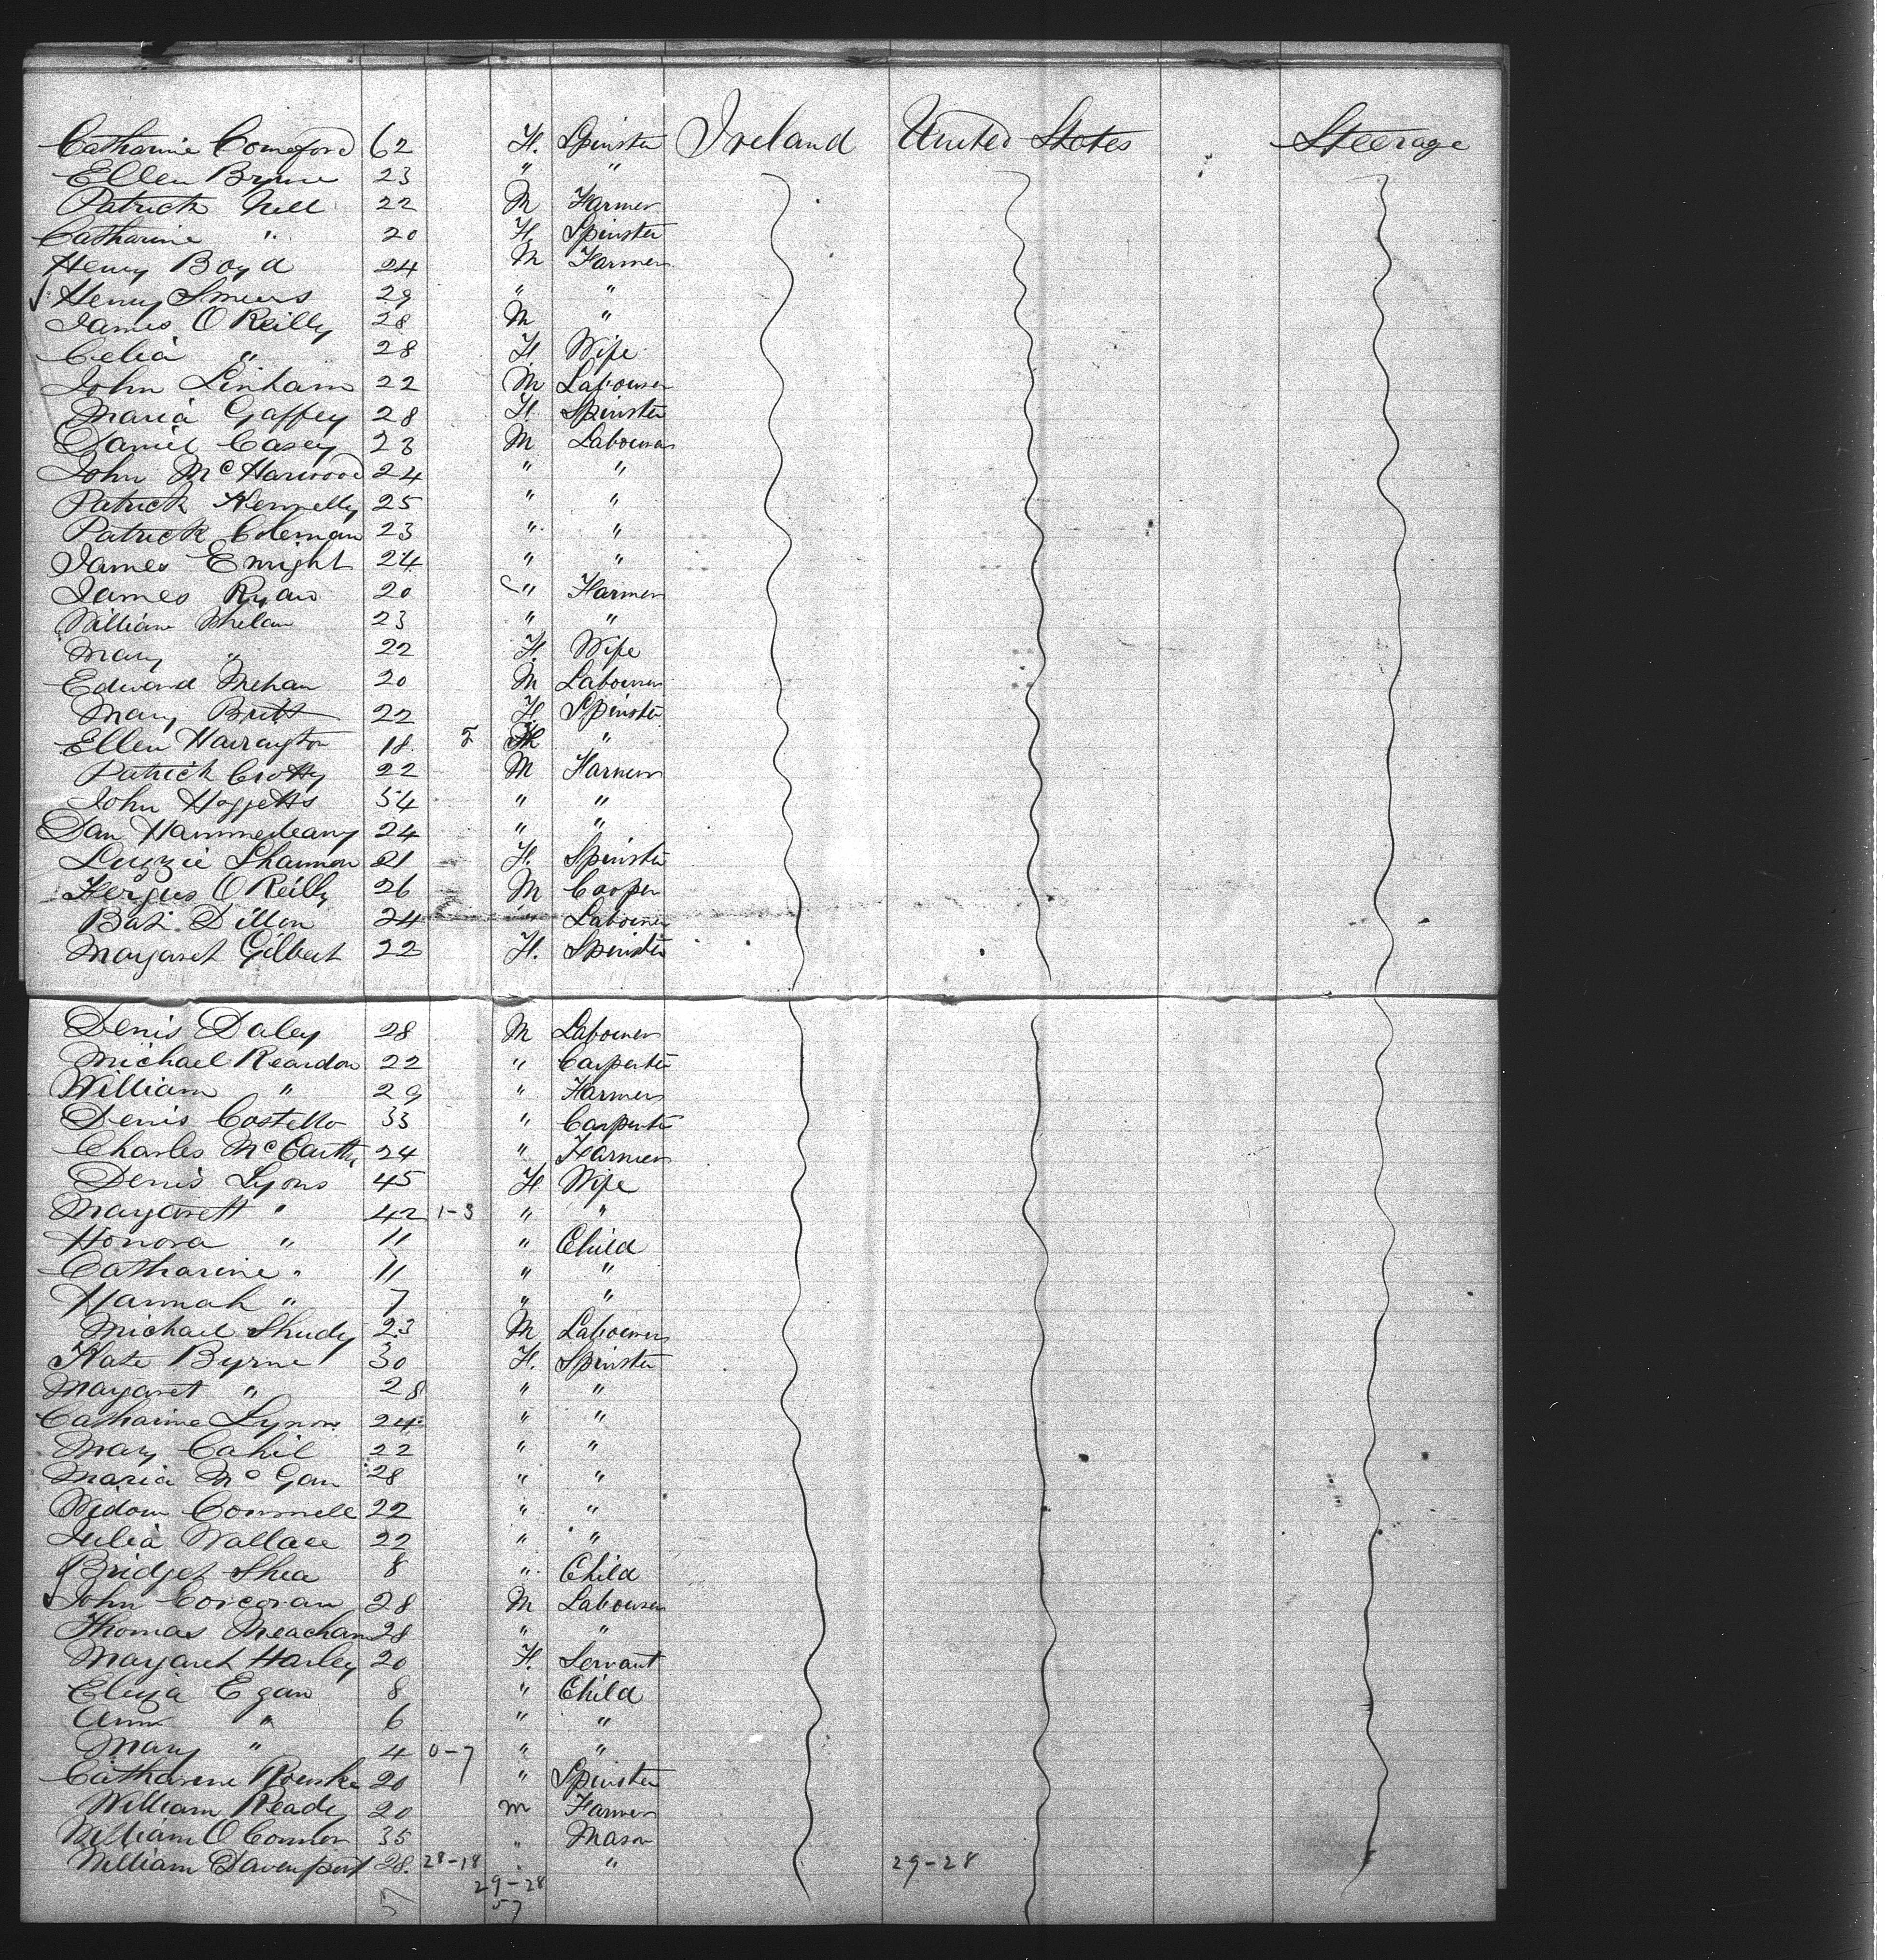 Catharine Comeford 62 F. Spinster Ireland United States Steerage
Ellen Byrne 23 " "
Patrick Neill 22 M Farmer
Catharine " 20 F. Spinster
Henry Boyd 24 M Farmer
Henry 29 " "
James O Reilly 28 M "
Celia " 28 F. Wife
John Linham 22 M Labourer
Maria Gaffey 28 F. Spinster
Daniel Casey 23 M Labourer
John Mc Harwood 24 " "
Patrick Kennelly 25 " "
Patrick Coleman 23 " "
James Enright 24 " "
James Ryan 20 " Farmer
William Whelan 23 " "
Mary " 22 F. Wife
Edward Mehan 20 M Labourer
Mary Britt 22 F. Spinster
Ellen Harrington 18 "
Patrick Crotty 22 M Farmer
John Hoggetts 54 " "
Dan 24 " "
Lizzie Shannon 21 F. Spinster
Fergus O Reilly 26 M Cooper
Bat. Dillon 24 " Labourer
Margaret Gilbert 22 F. Spinster
Denis Daley 28 M Labourer
Michael Reardon 22 " Carpenter
William " 29 " Farmer
Denis Costello 33 " Carpenter
Charles McCarthy 24 " Farmer
Denis Lyons 45 F Wife
Margarett " 42 1-3 " "
Honora " 11 " Child
Catharine " 11 " "
Hannah " 7 " "
Michael Shudy 23 M Labourer
Kate Byrne 30 F. Spinster
Margaret " 28 " "
Catharine Lyons 24 " "
Mary Cahil 22 " "
Maria Mc Gan 28 " "
Widow Connell 22 " "
Julia Wallace 22 " "
Bridget Shea 8 " Child
John Corcoran 28 M Labourer
Thomas Meacham 28 " "
Margaret Harley 20 F. Servant
Eliza Egan 8 " Child
Ann " 6 " "
Mary " 4 0-7 " "
Catharine Rourke 20 " Spinster
William Ready 20 M Farmer
William O Connor 35 " Mason
William Davenport 28. 28-18 " " 29-28
29-28
57 57